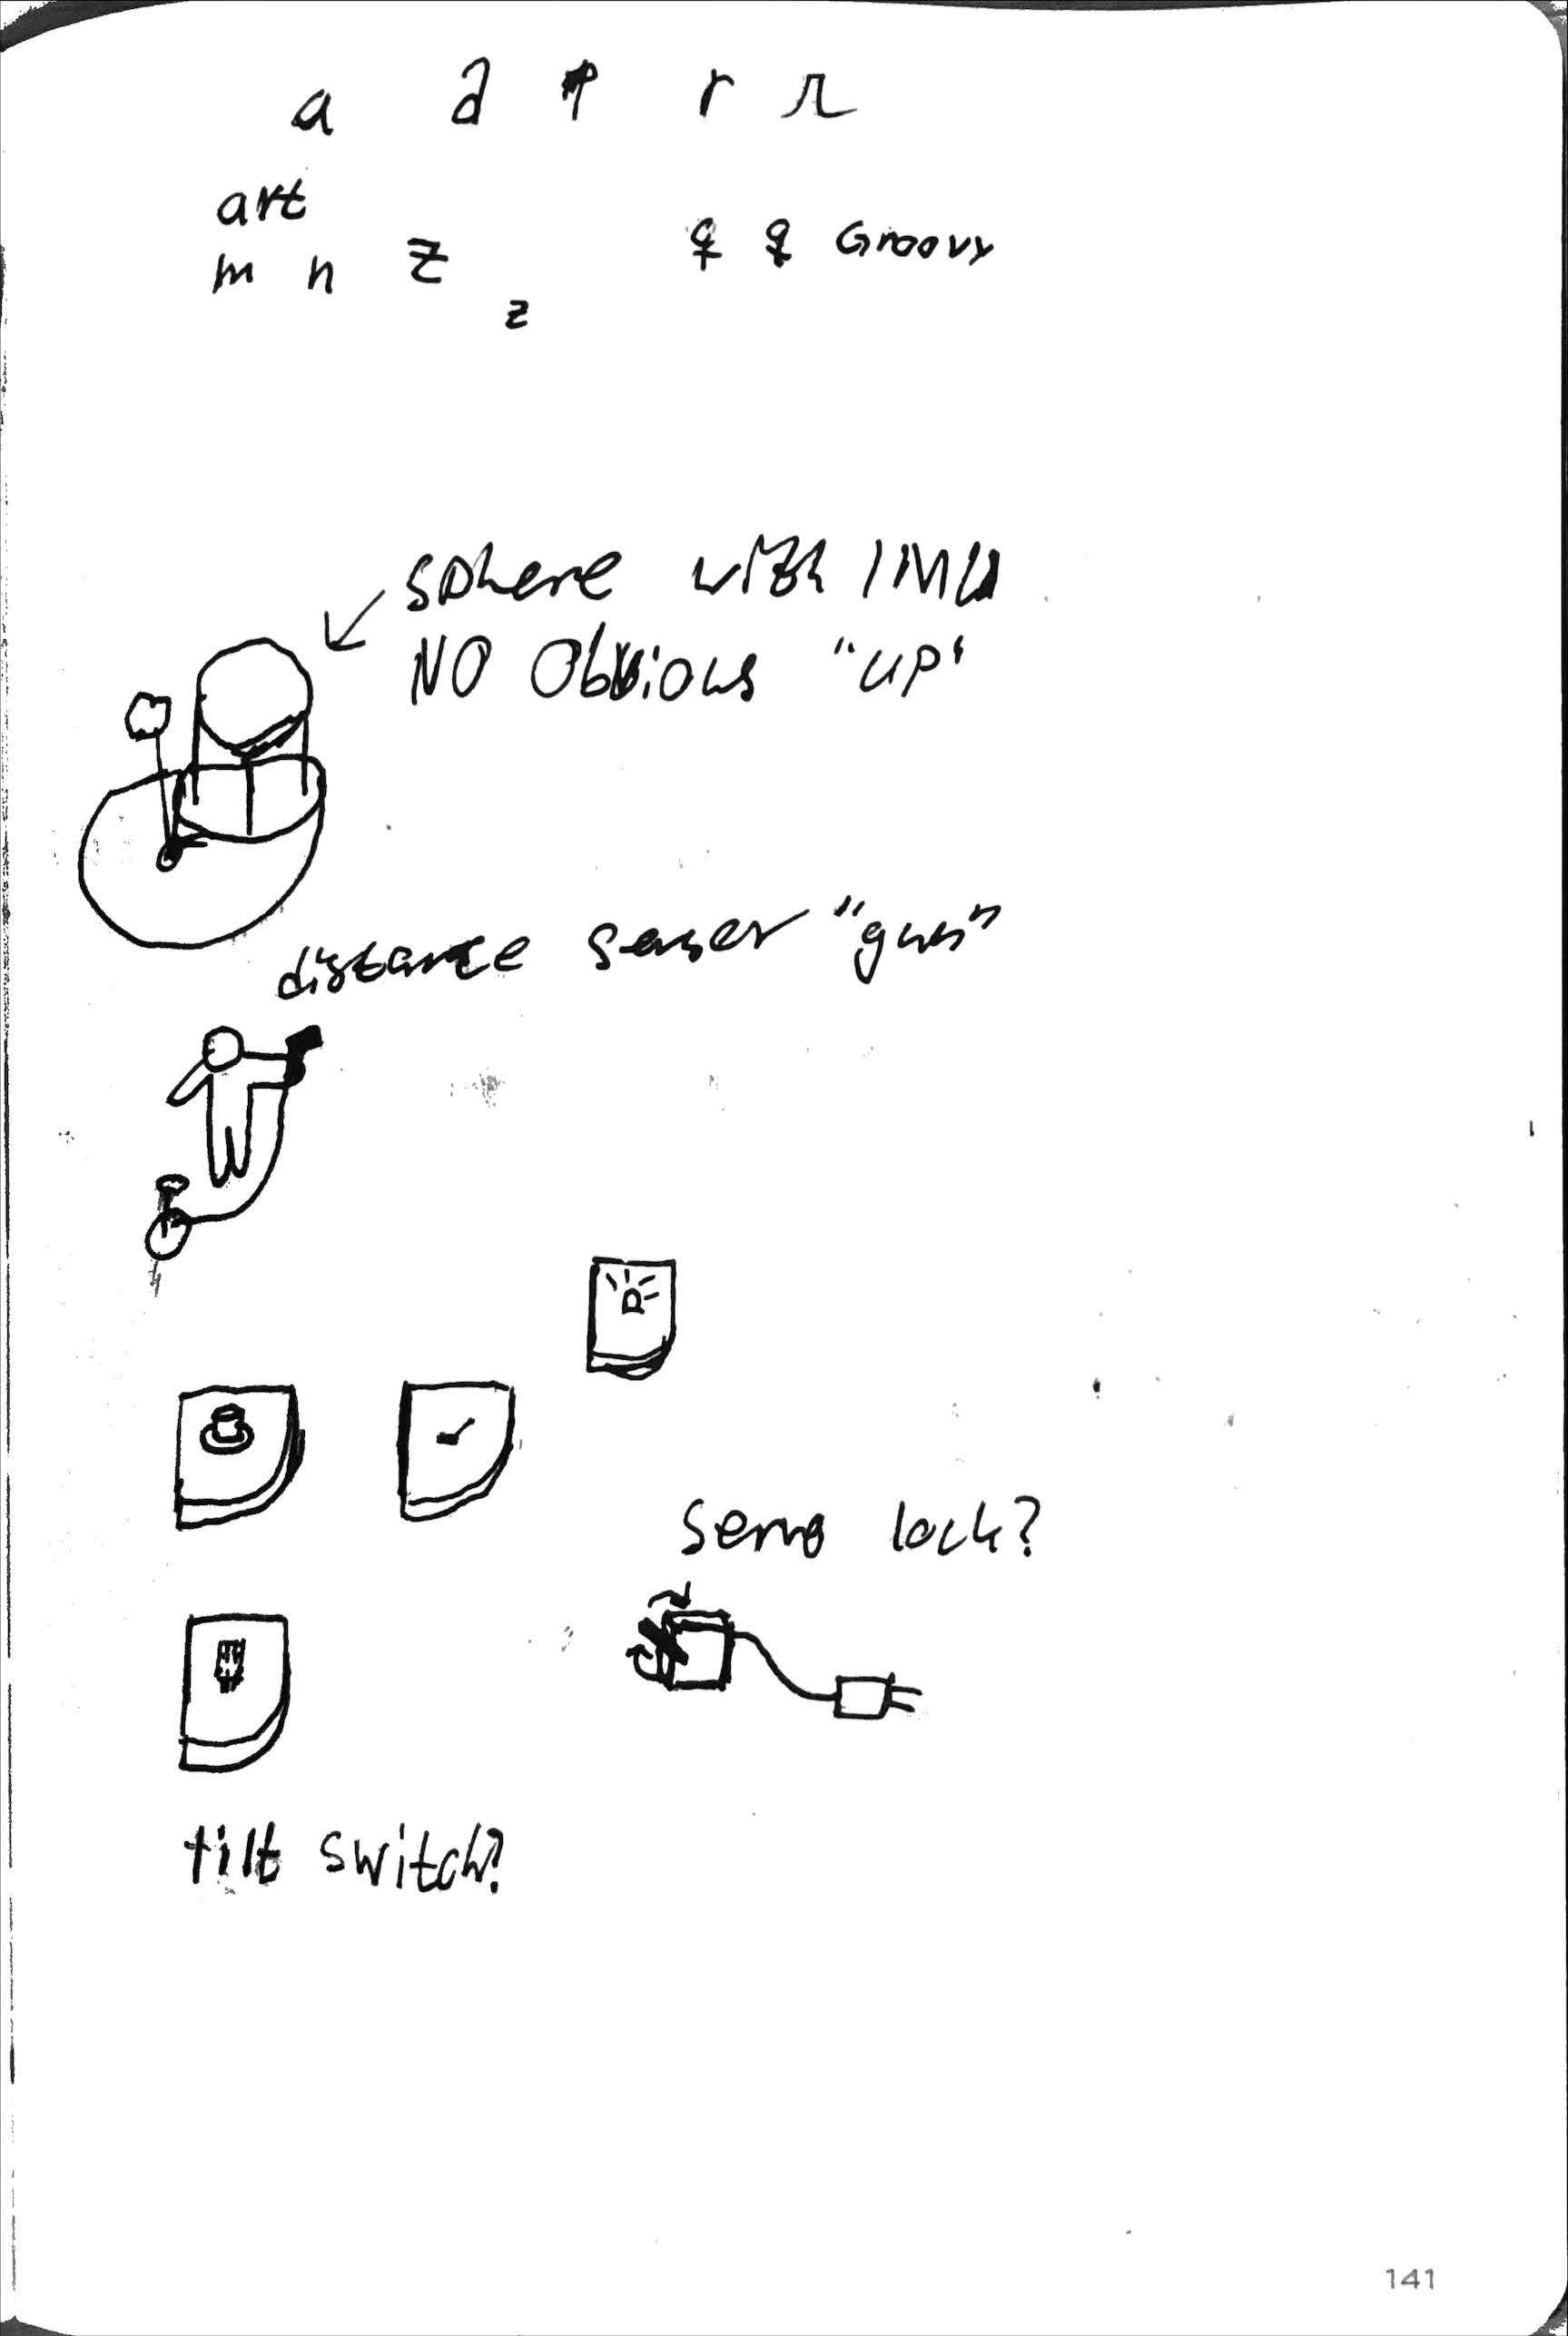 a a r r
art
m n z z
Groovy
sphere with IMU
NO Obvious "up"
distance sensor "gun"
servo lock?
tilt switch?
141